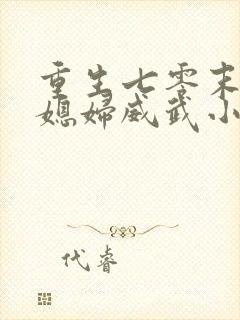 重生七零末
媳妇威武小
代睿